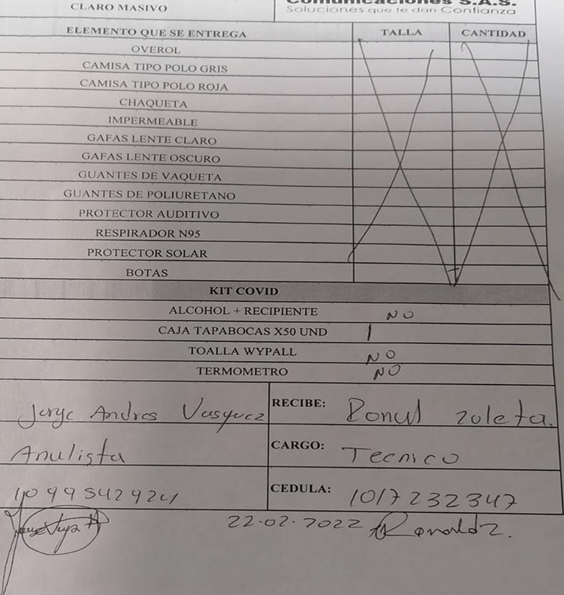 CLARO MASIVO
Comunicaciones S.A.S.
Soluciones que te dan Confianza
ELEMENTO QUE SE ENTREGA TALLA CANTIDAD
OVEROL
CAMISA TIPO POLO GRIS
CAMISA TIPO POLO ROJA
CHAQUETA
IMPERMEABLE
GAFAS LENTE CLARO
GAFAS LENTE OSCURO
GUANTES DE VAQUETA
GUANTES DE POLIURETANO
PROTECTOR AUDITIVO
RESPIRADOR N95
PROTECTOR SOLAR
BOTAS
KIT COVID
ALCOHOL + RECIPIENTE NO
CAJA TAPABOCAS X50 UND 1
TOALLA WYPALL NO
TERMOMETRO NO
Jorge Andres Vasquez RECIBE: Ronal zoleta.
Analista CARGO: Tecnico
1099542924 CEDULA: 1017232347
22-02-2022 Ronaldz.